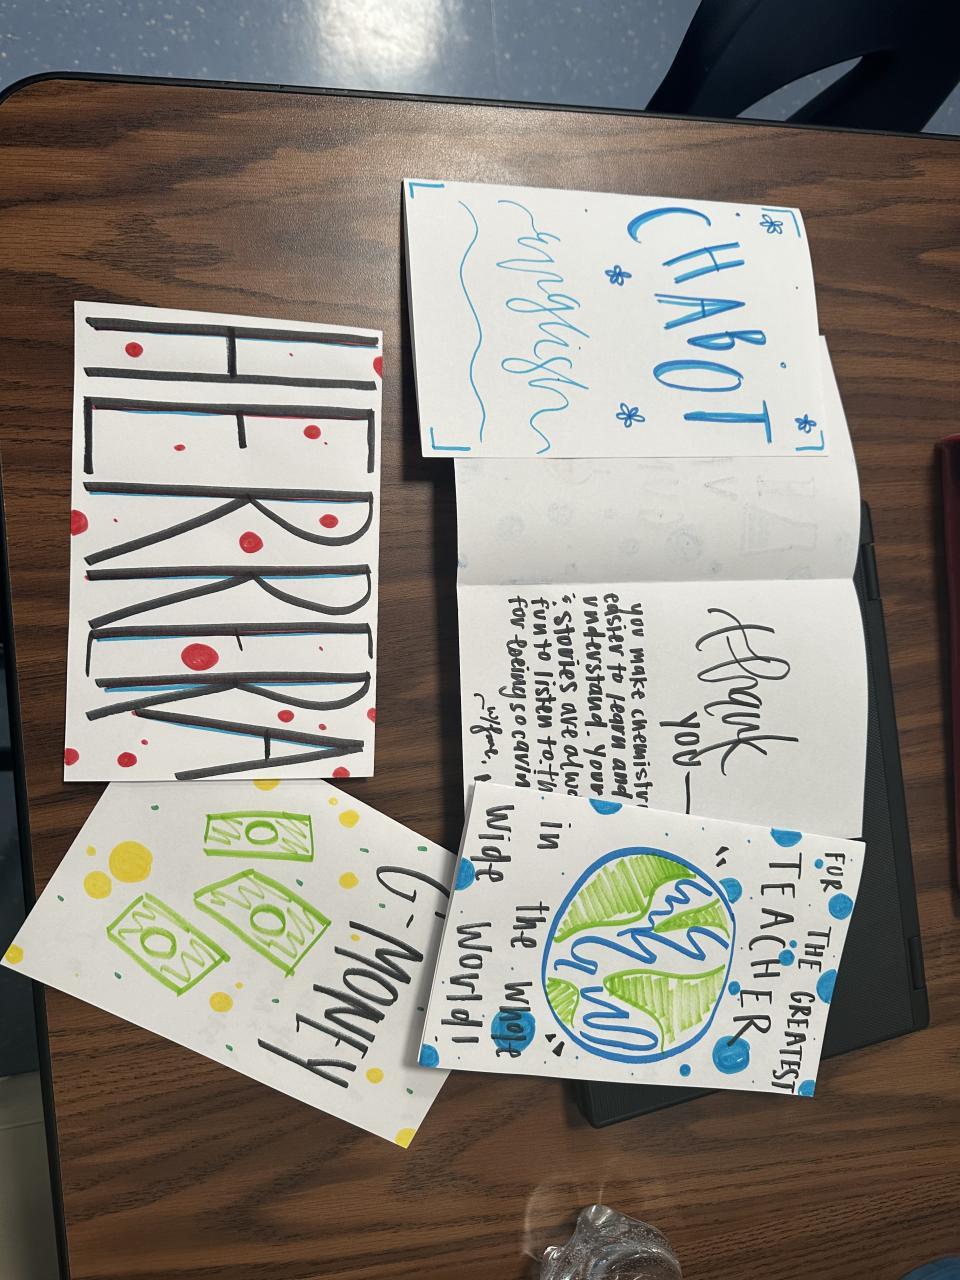 CHABOT
english
HERRERA
Thank
YOU
you make chemistry
easier to learn and
understand. your
stories are alwa
fun to listen to. th
for being so carin
FOR THE GREATEST
TEACHER
in the whole
wide world!
G-MONEY